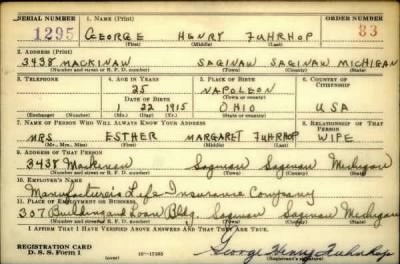 SERIAL NUMBER 1. NAME (Print) ORDER NUMBER
1295 GEORGE HENRY FUHRHOP 83
(First) (Middle) (Last)
2. ADDRESS (Print)
3438 MACKINAW SAGINAW SAGINAW MICHIGAN
(Number and street or R. F. D. number) (Town) (County) (State)
3. TELEPHONE 4. AGE IN YEARS 5. PLACE OF BIRTH 6. COUNTRY OF CITIZENSHIP
25 NAPOLEON
DATE OF BIRTH (Town or county)
1 22 1915 OHIO USA
(Exchange) (Number) (Mo.) (Day) (Yr.) (State or country)
7. NAME OF PERSON WHO WILL ALWAYS KNOW YOUR ADDRESS 8. RELATIONSHIP OF THAT PERSON
MRS ESTHER MARGARET FUHRHOP WIFE
(Mr., Mrs., Miss) (First) (Middle) (Last)
9. ADDRESS OF THAT PERSON
3438 Mackinaw Saginaw Saginaw Michigan
(Number and street or R. F. D. number) (Town) (County) (State)
10. EMPLOYER'S NAME
Manufacturers Life Insurance Company
11. PLACE OF EMPLOYMENT OR BUSINESS
307 Building and Loan Bldg. Saginaw Saginaw Michigan
(Number and street or R. F. D. number) (Town) (County) (State)
I AFFIRM THAT I HAVE VERIFIED ABOVE ANSWERS AND THAT THEY ARE TRUE.
REGISTRATION CARD
D. S. S. Form 1 (over) George Henry Fuhrhop
(Registrant's signature)